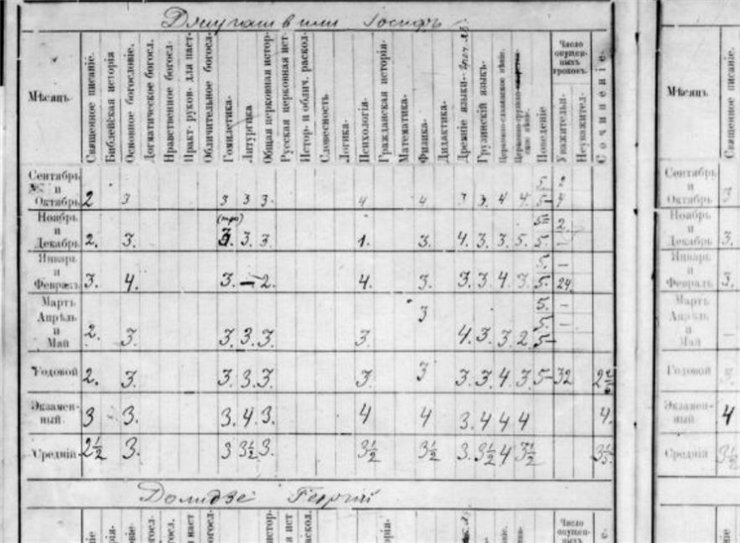 Джугашвили Іосифъ
Мѣсяцъ.
Священное писаніе.
Библейская исторія
Основное богословіе.
Догматическое богосл.
Нравственное богосл-
Практ- руков- для паст-
Обличительное богосл-
Гомилетика-
Литургика
Общая церковная истор-
Русская церковная ист
Истор- и облич. раскол-
Словесность
Логика-
Психологія-
Гражданская исторія-
Математика-
Физика-
Дидактика-
Древніе языки-
Грузинскій языкъ-
Церковно-славянское пѣніе.
Поведеніе
Число опущенныхъ уроковъ.
Уважительн-
Неуважител-
Сочиненіе.
Сентябрь и Октябрь 2 3 3 3 3. 4 4 3 3. 4 4. 5 5- 2 4
Ноябрь и Декабрь 2. 3. 3. 3. 3 1. 3. 4. 3. 3. 5. 5= 5. 2. –
Январь и Февраль 3. 4. 3. – 2. 4. 3. 3. 3. 4. 3. 5. 5. – 24.
Мартъ Апрѣль и Май 2. 3. 3. 3. 3. 3. 3 4. 3. 3. 2. 5. 5. 5- – – –
Годовой 2. 3. 3. 3. 3. 3. 3 3. 3. 4 3. 5- 32
Экзаменный. 3 3. 3. 4. 3. 4 4 3. 4 4 4 4.
Средній 2½ 3. 3 3½ 3. 3½ 3½ 3. 3½ 4 3½
Долидзе Георгій
Мѣсяцъ.
Священное писаніе.
Сентябрь и Октябрь 3
Ноябрь и Декабрь 3.
Январь и Февраль 3.
Мартъ Апрѣль и Май –
Годовой 3.
Экзаменный. 4
Средній 3½